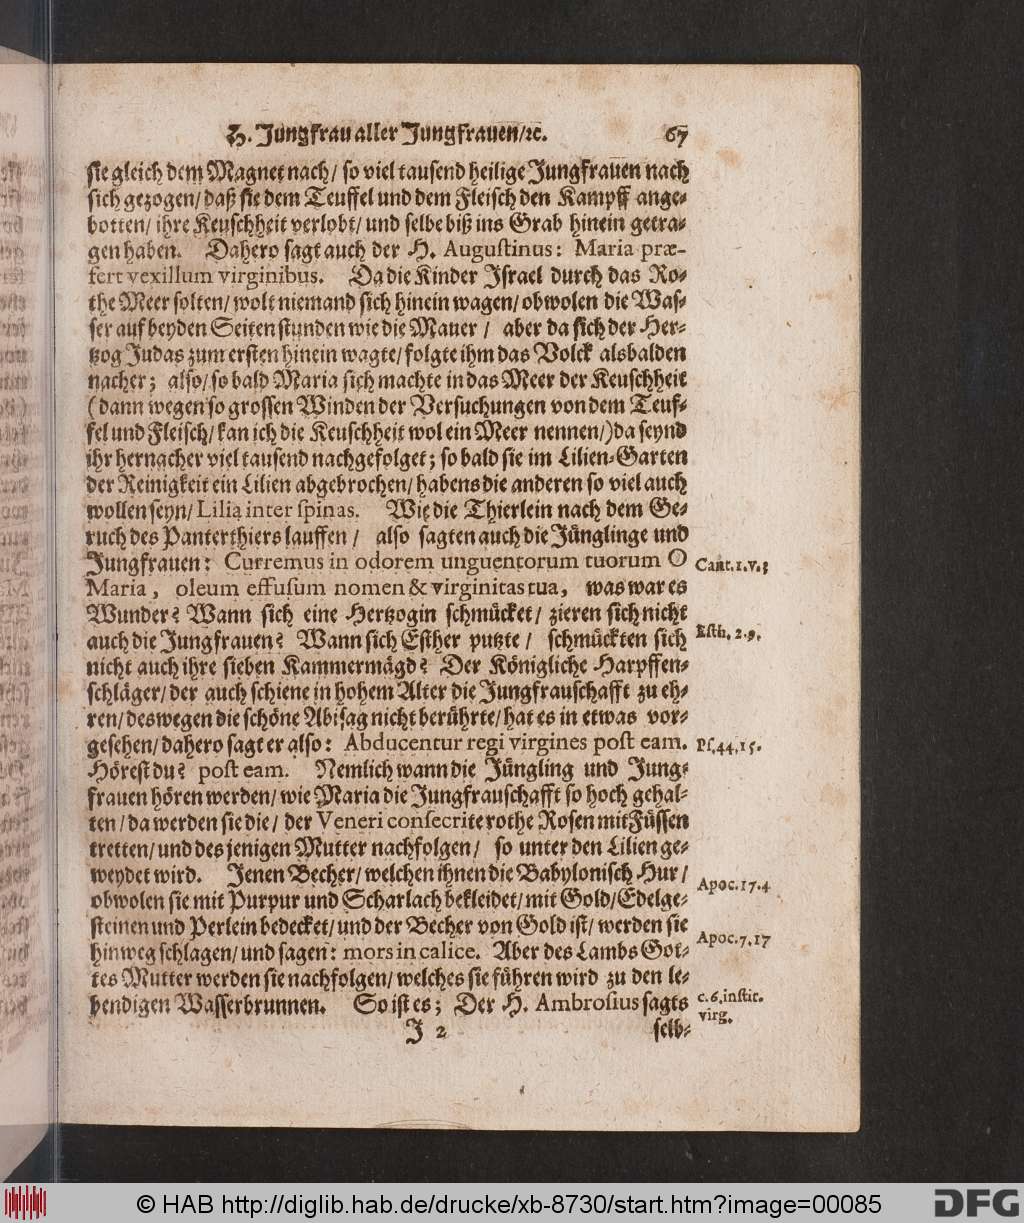 H. Jungfrau aller Jungfrauen/ꝛc. 67
sie gleich dem Magnet nach/ so viel tausend heilige Jungfrauen nach
sich gezogen/ daß sie dem Teuffel und dem Fleisch den Kampff ange-
botten/ ihre Keuschheit verlobt/ und selbe biß ins Grab hinein getra-
gen haben. Dahero sagt auch der H. Augustinus: Maria præ-
fert vexillum virginibus. Da die Kinder Israel durch das Ro-
the Meer solten/ wolt niemand sich hinein wagen/ obwolen die Was-
ser auf beyden Seiten stunden wie die Mauer / aber da sich der Her-
tzog Judas zum ersten hinein wagte/ folgte ihm das Volck alsbalden
nacher; also/ so bald Maria sich machte in das Meer der Keuschheit
(dann wegen so grossen Winden der Versuchungen von dem Teuf-
fel und Fleisch/ kan ich die Keuschheit wol ein Meer nennen/) da seynd
ihr hernacher viel tausend nachgefolget; so bald sie im Lilien-Garten
der Reinigkeit ein Lilien abgebrochen/ habens die anderen so viel auch
wollen seyn/ Lilia inter spinas. Wie die Thierlein nach dem Ge-
ruch des Panterthiers lauffen / also sagten auch die Jünglinge und
Jungfrauen: Curremus in odorem unguentorum tuorum O
Cant. 1. v. 3
Maria, oleum effusum nomen & virginitas tua, was war es
Wunder? Wann sich eine Hertzogin schmücket/ zieren sich nicht
auch die Jungfrauen? Wann sich Esther putzte / schmückten sich
Esth. 2. 9.
nicht auch ihre sieben Kammermägd? Der Königliche Harpffen-
schläger/ der auch schiene in hohem Alter die Jungfrauschafft zu eh-
ren/ deswegen die schöne Abisag nicht berührte/ hat es in etwas vor-
gesehen/ dahero sagt er also: Abducentur regi virgines post eam.
Ps. 44. 15.
Hörest du? post eam. Nemlich wann die Jüngling und Jung-
frauen hören werden/ wie Maria die Jungfrauschafft so hoch gehal-
ten/ da werden sie die/ der Veneri consecrirte rothe Rosen mit Füssen
tretten/ und des jenigen Mutter nachfolgen/ so unter den Lilien ge-
weydet wird. Jenen Becher/ welchen ihnen die Babylonisch Hur/
Apoc. 17. 4
obwolen sie mit Purpur und Scharlach bekleidet/ mit Gold/ Edelge-
steinen und Perlein bedecket/ und der Becher von Gold ist/ werden sie
Apoc. 7. 17
hinweg schlagen/ und sagen: mors in calice. Aber des Lambs Got-
tes Mutter werden sie nachfolgen/ welches sie führen wird zu den le-
bendigen Wasserbrunnen. So ist es; Der H. Ambrosius sagts
c. 6. instit.
virg.
J 2 selb-
© HAB http://diglib.hab.de/drucke/xb-8730/start.htm?image=00085
DFG